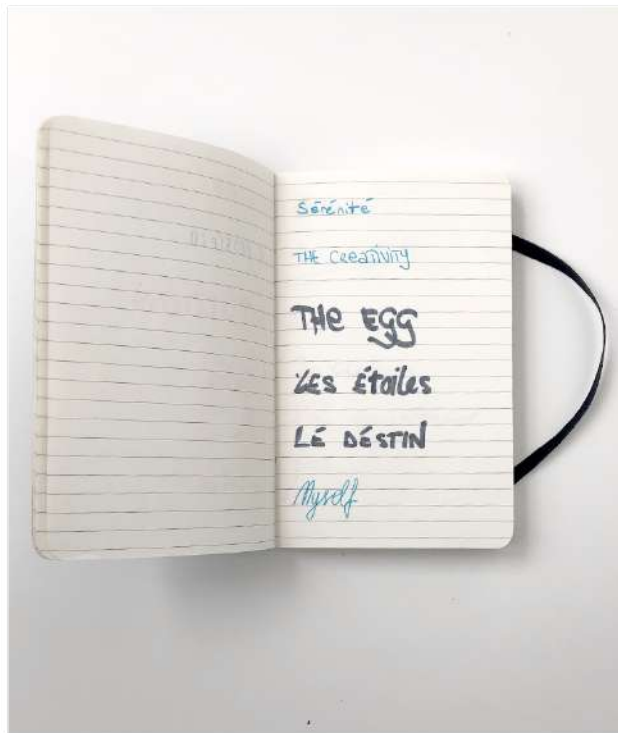 Sérénité
THE CREATIVITY
THE EGG
LES Étoiles
LÉ DÉSTIN
Myself